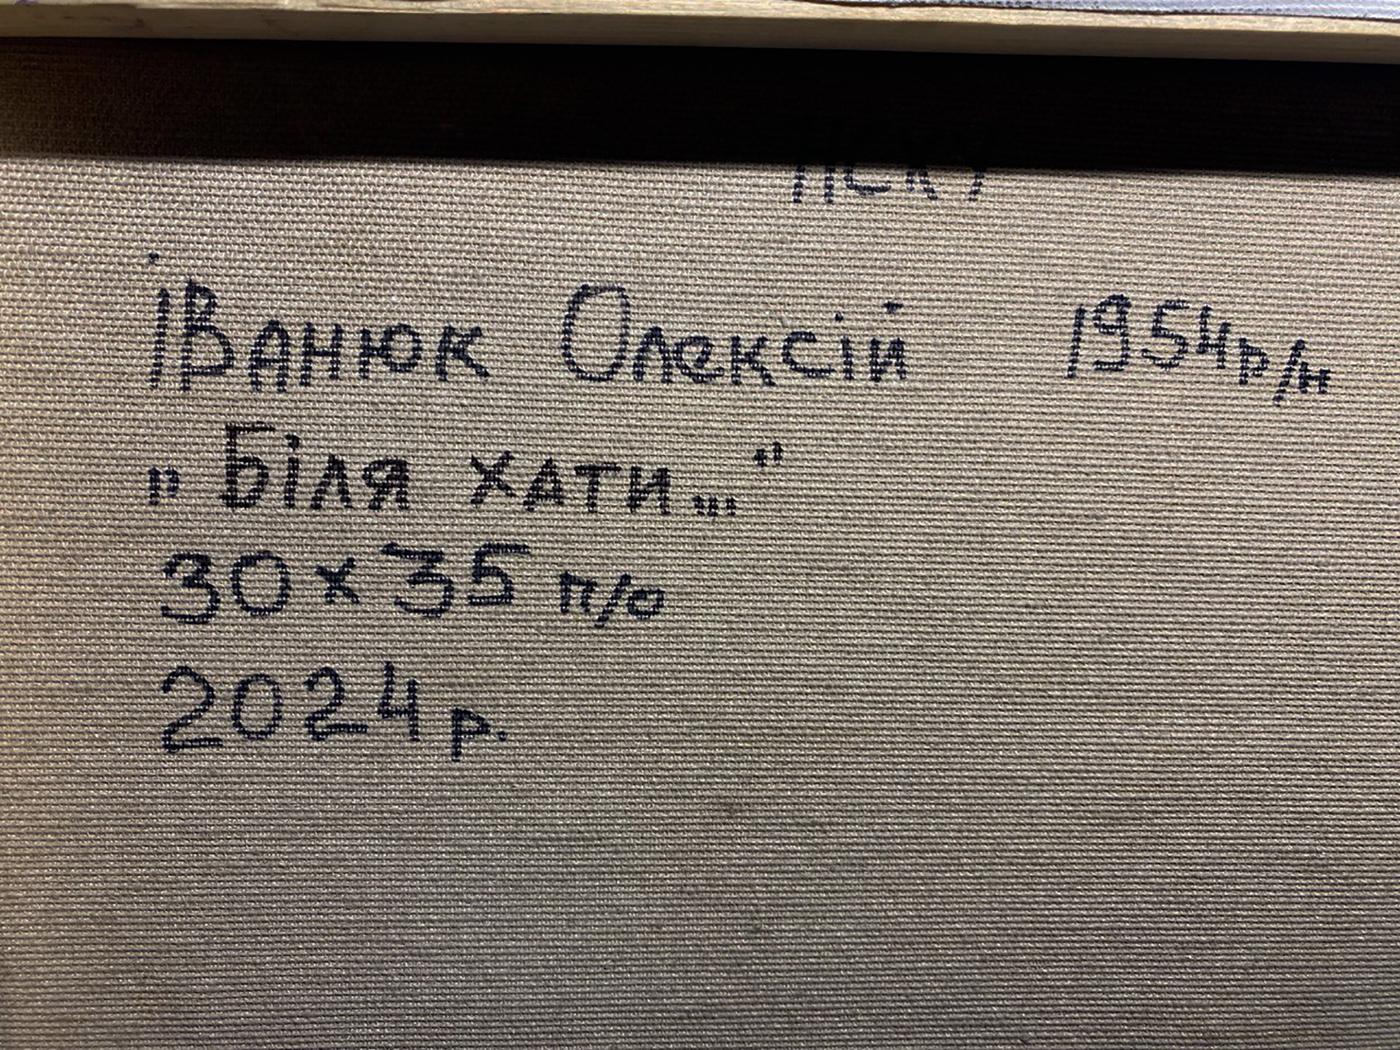 НСКУ
Іванюк Олексій 1954р/н
„Біля хати..."
30х35 п/о
2024р.